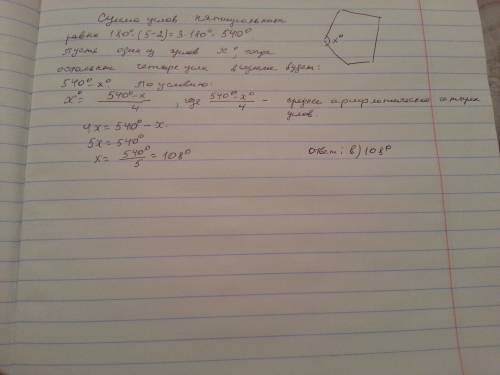 Сумма углов пятиугольника
равна 180°·(5-2)=3·180°=540°
Пусть один из углов x°, тогда
остальные четыре угла в сумме будет:
540°-x°. По условию:
x°= (540°-x)/4, где (540°-x°)/4 - среднее арифметическое четырех
углов.
x°
4x=540°-x
5x=540°
x= 540°/5 =108°
Ответ: в) 108°